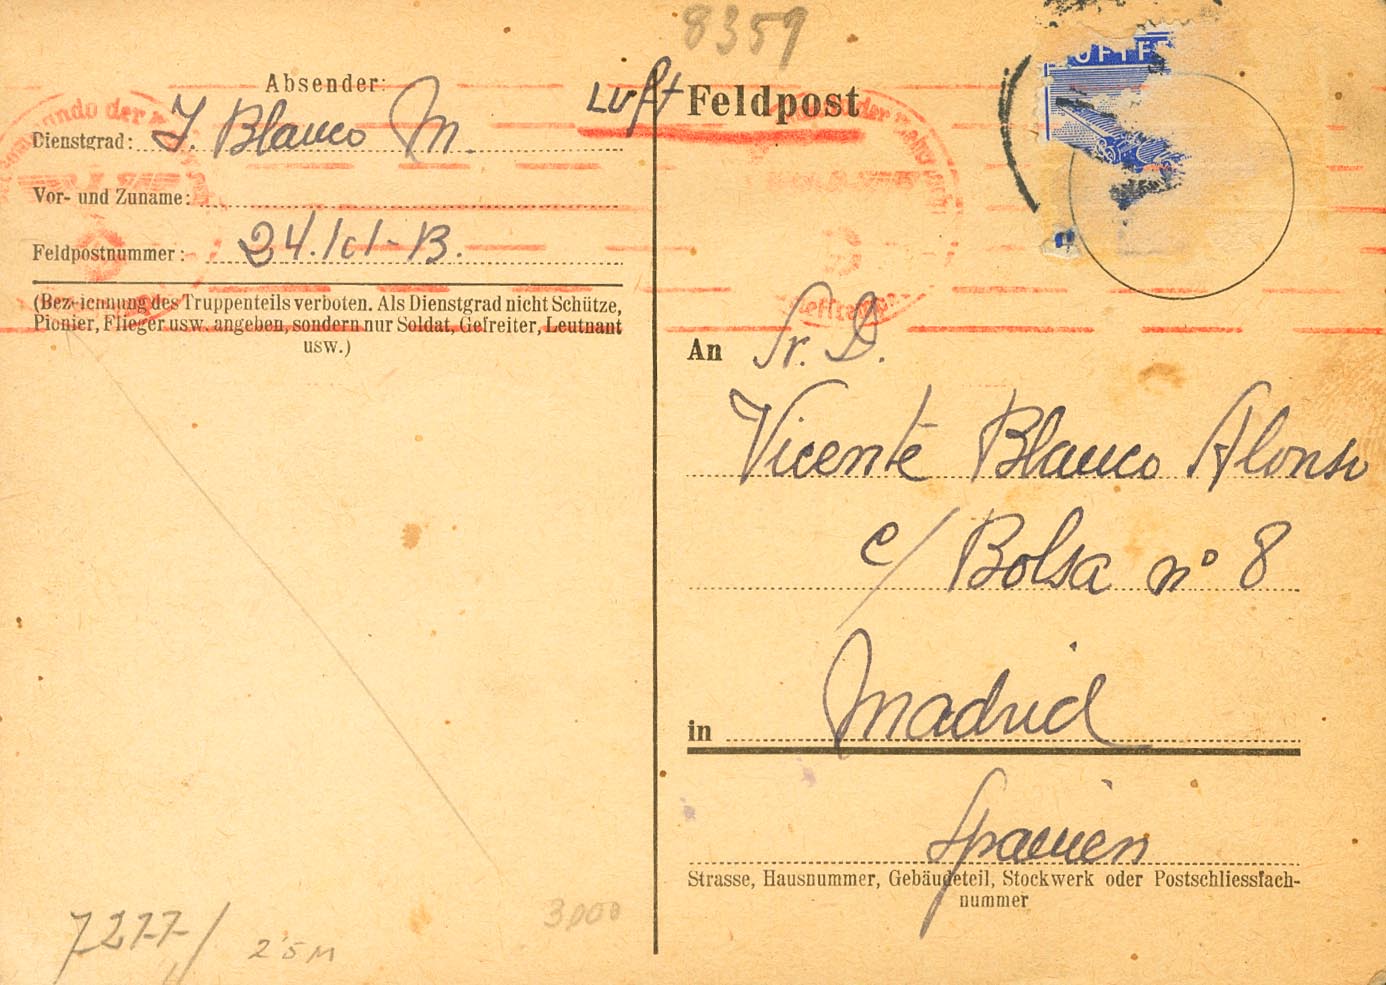 8359
Absender:
Luft Feldpost
LUFTFE
Dienstgrad: J. Blanco M.
Vor- und Zuname:
Feldpostnummer:
(Bezeichnung des Truppenteils verboten. Als Dienstgrad nicht Schütze,
Pionier, Flieger usw. angeben, sondern nur Soldat, Gefreiter, Leutnant
usw.)
An Sr. D.
Vicente Blanco Alonso
c/ Bolsa nº 8
in Madrid
Spanien
Strasse, Hausnummer, Gebäudeteil, Stockwerk oder Postschliessfach-
nummer
3,000
7277/
2'5 M